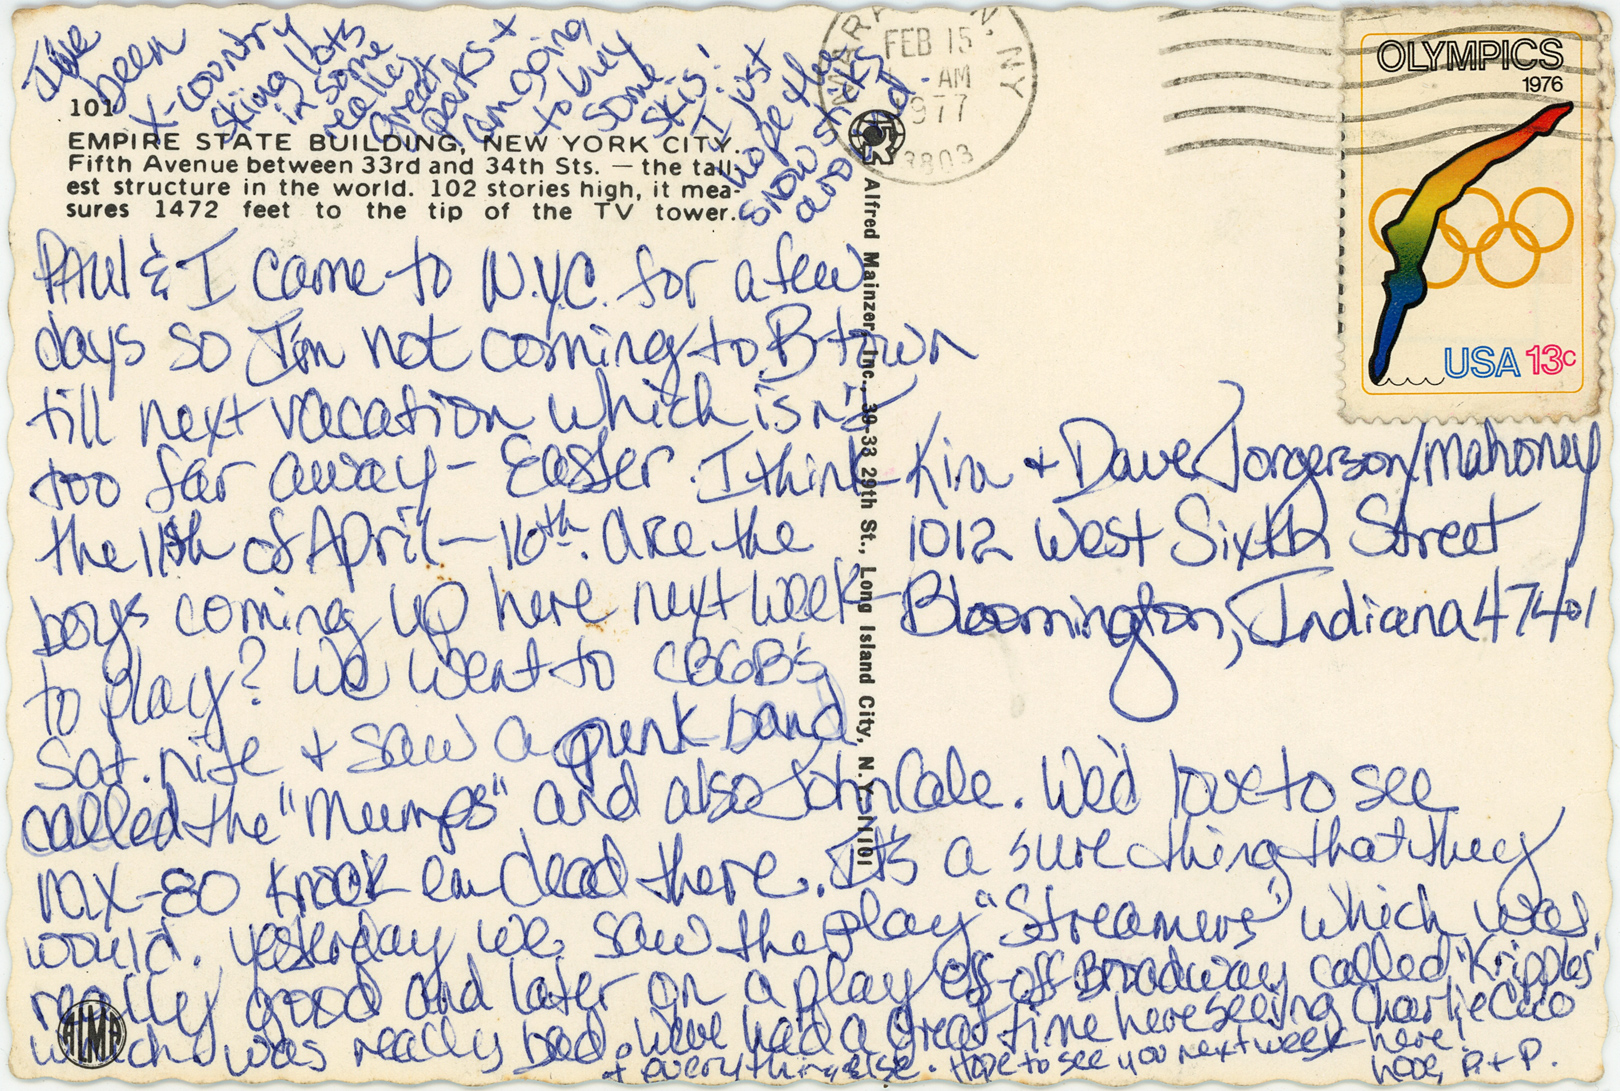 I've
been
X-country
skiing lots
in some
really
great
parks +
am going
to buy
some
skis!
I just
hope the
snow sticks
around.
101
EMPIRE STATE BUILDING, NEW YORK CITY.
Fifth Avenue between 33rd and 34th Sts. — the tall-
est structure in the world. 102 stories high, it mea-
sures 1472 feet to the tip of the TV tower.
PAUL & I came to N.Y.C. for a few
days so I'm not coming to B town
till next vacation which isn't
too far away - Easter. I think
the 11th of April - 16th. Are the
boys coming up here next week
to play? We went to CBGB's
Sat. nite + saw a punk band
called the "Mumps" and also John Cale. We'd love to see
MX-80 knock em dead there. It's a sure thing that they
would. Yesterday we saw the play "Streamers" which was
really good and later on a play off-off Broadway called "Kripples"
which was really bad. We've had a great time here seeing Charlie Coco
+ everything else. Hope to see you next week here.
Love, P. + P.
Alfred Mainzer, Inc., 39-33 29th St., Long Island City, N.Y. 11101
ALMA
FEB 15
AM
1977
NY
OLYMPICS
1976
USA 13c
Kim + Dave Jorgerson/Mahoney
1012 West Sixth Street
Bloomington, Indiana 47401